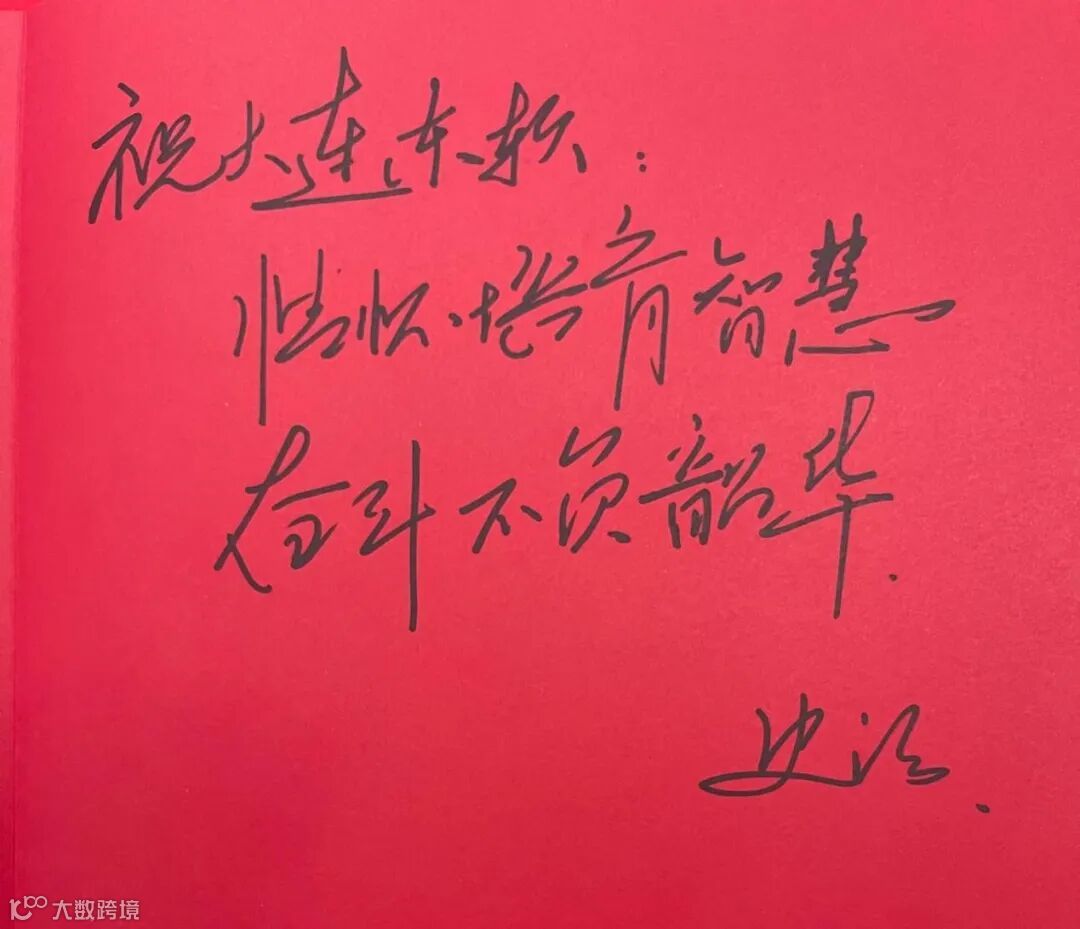 祝大连东软：
情怀培育智慧
奋斗不负韶华.
史
大数跨境